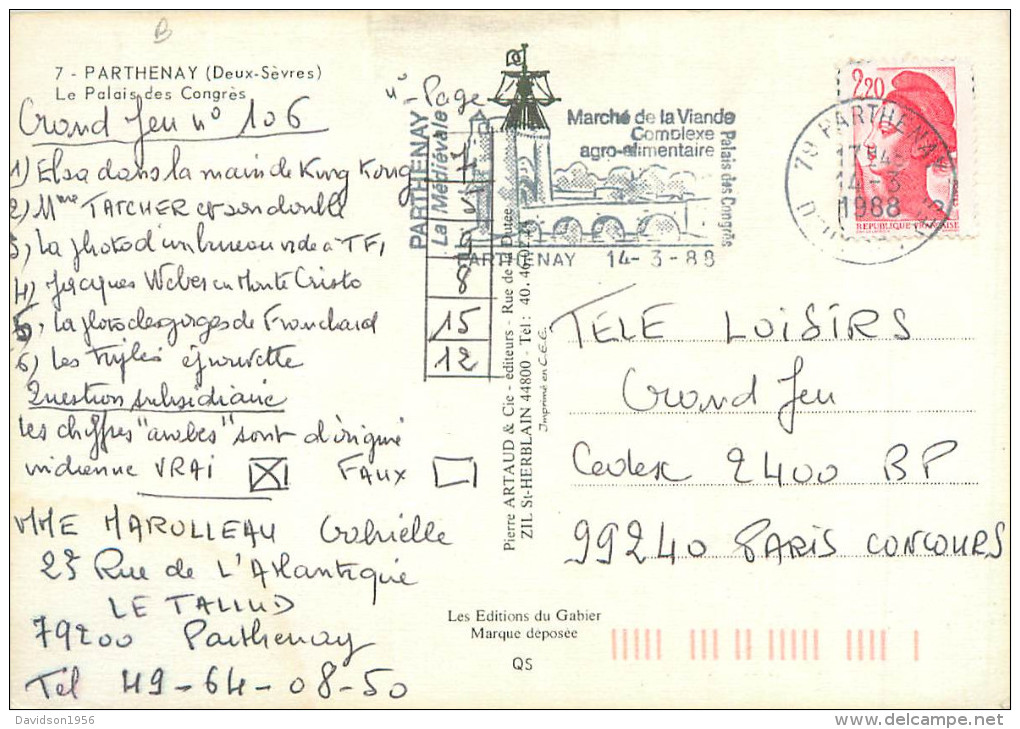 B
7 - PARTHENAY (Deux-Sèvres)
Le Palais des Congrès
Grand Jeu n° 106
1) Elsa dans la main de King Kong
2) Mme TATCHER et son double
3) La photo d'un bureau vide à TF1
4) Jacques Weber en Monte Cristo
5) La photo des gorges de Franchard
6) Les éprouvette
Question subsidiaire
Les chiffres "arabes" sont d'origine
indienne VRAI ☒ FAUX ☐
MME MAROLLEAU Gabrielle
25 Rue de L'Atlantique
LE TALLUD
79200 Parthenay
Tél 49-64-08-50
n° - Page
7
8
15
12
PARTHENAY
La Médiévale
Marché de la Viande
Complexe
agro-alimentaire
Palais des Congrès
PARTHENAY 14-3-88
Pierre ARTAUD & Cie - éditeurs - Rue de la Dutée
ZIL St-HERBLAIN 44800 - Tel : 40.46.02.
Imprimé en C.E.E.
2,20
REPUBLIQUE FRANCAISE
79 PARTHENAY
17H4
14-3
1988
TELE LOISIRS
Grand Jeu
Cedex 2400 BP
99240 PARIS CONCOURS
Les Editions du Gabier
Marque déposée
QS
Davidson1956
delcampe.net